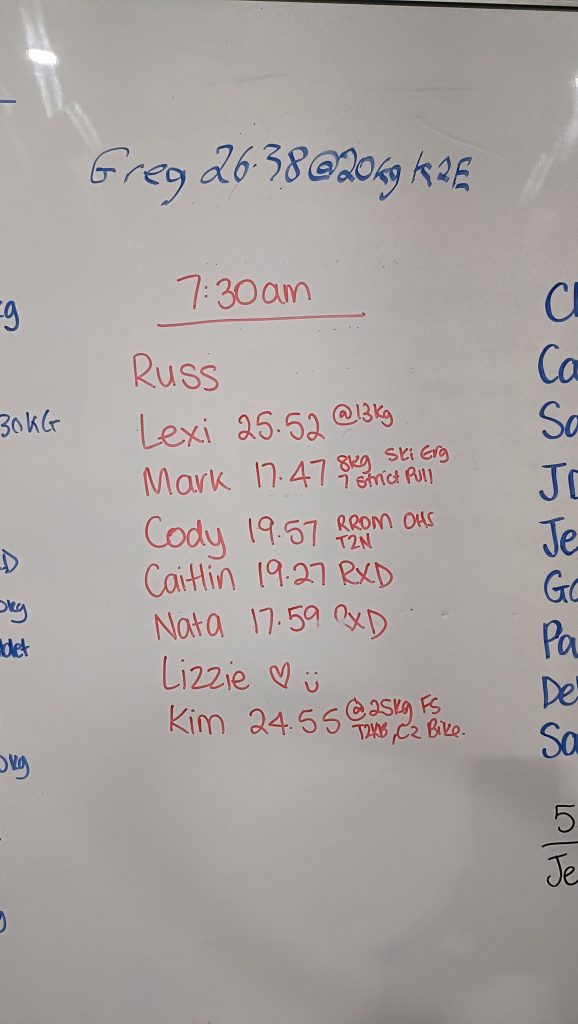 Greg 26.38@20kg K2E
7:30am
Russ
Lexi 25.52 @13kg
Mark 17.47 8kg Ski Erg
7 strict Pull
Cody 19.57 RROM OHS
T2N
Caitlin 19.27 RXD
Nata 17.59 RXD
Lizzie ♡ ü
Kim 24.55 @25kg FS
T2KB, C2 Bike.
30KG
Ca
So
JD
Je
Go
Pa
De
Sa
5
Je